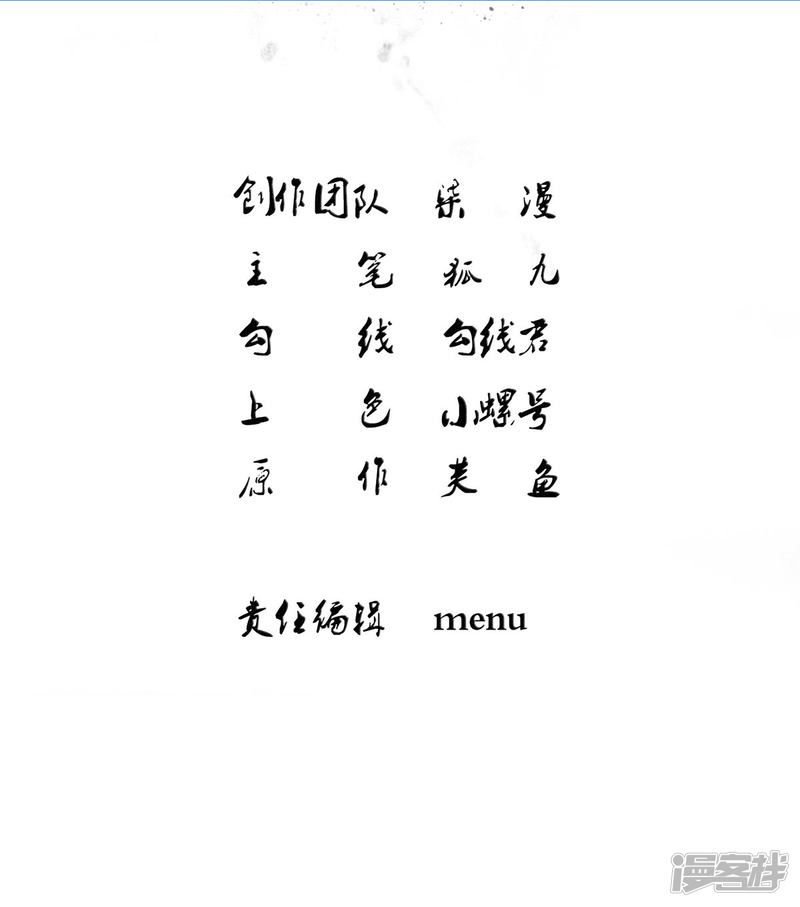 创作团队 柒漫
主笔 狐九
勾线 勾线君
上色 小螺号
原作 芙鱼
责任编辑 menu
漫客栈